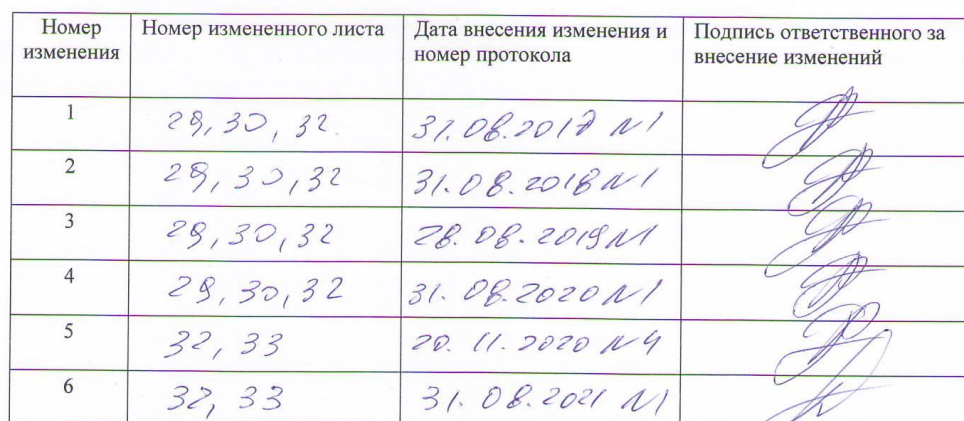 Номер изменения | Номер измененного листа | Дата внесения изменения и номер протокола | Подпись ответственного за внесение изменений
1 | 29, 30, 32. | 31.08.2017 N1
2 | 29, 30, 32 | 31.08.2018 N1
3 | 29, 30, 32 | 28.08.2019 N1
4 | 29, 30, 32 | 31.08.2020 N1
5 | 32, 33 | 20.11.2020 N4
6 | 32, 33 | 31.08.2021 N1